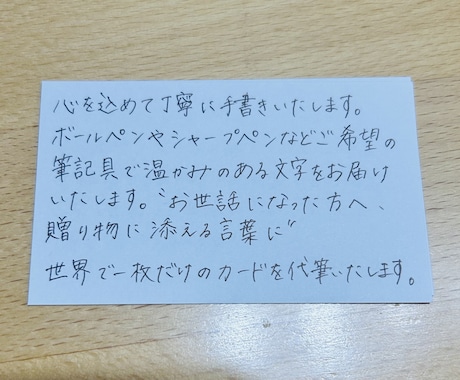 心を込めて丁寧に手書きいたします。
ボールペンやシャープペンなどご希望の
筆記具で温かみのある文字をお届け
いたします。“お世話になった方へ、
贈り物に添える言葉に”
世界で一枚だけのカードを代筆いたします。